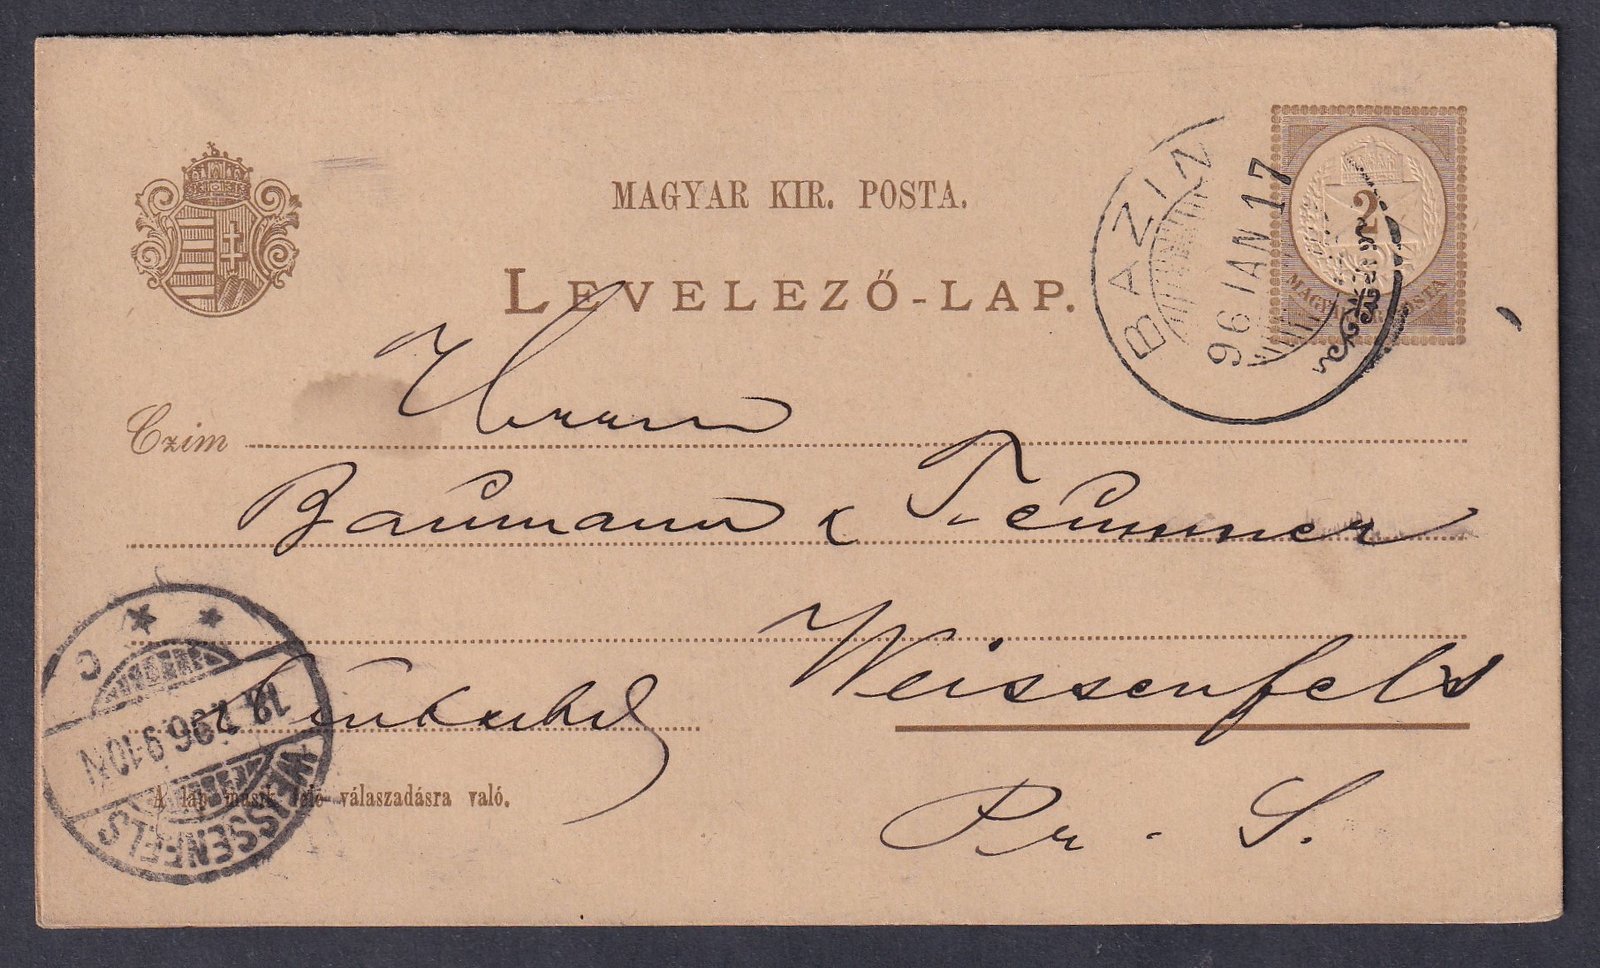 MAGYAR KIR. POSTA.
LEVELEZŐ-LAP.
BAZIN
96 JAN 17
2
MAGYAR KIR. POSTA
Czim
Herrn
Baumann &
Weissenfels
Pr. S.
A lap másik fele válaszadásra való.
WEISSENFELS
19 1. 96. 9-10 N
C